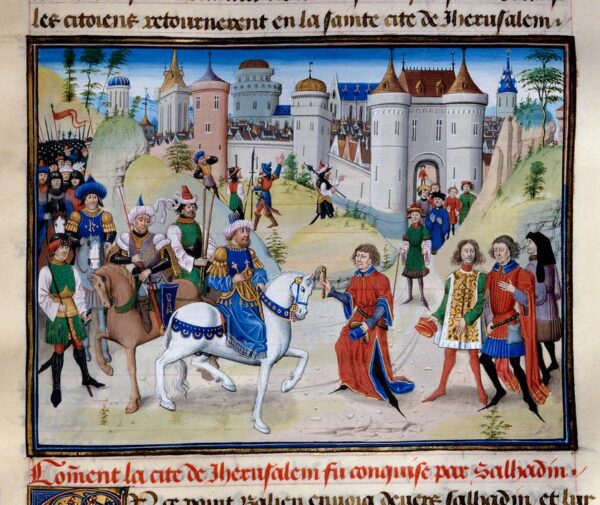 les citoiens retournerent en la sainte cite de Jherusalem.
Co͞ment la cite de Jherusalem fu conquise par Salhadin.
En ce point Balien envoia devers Salhadin et lui